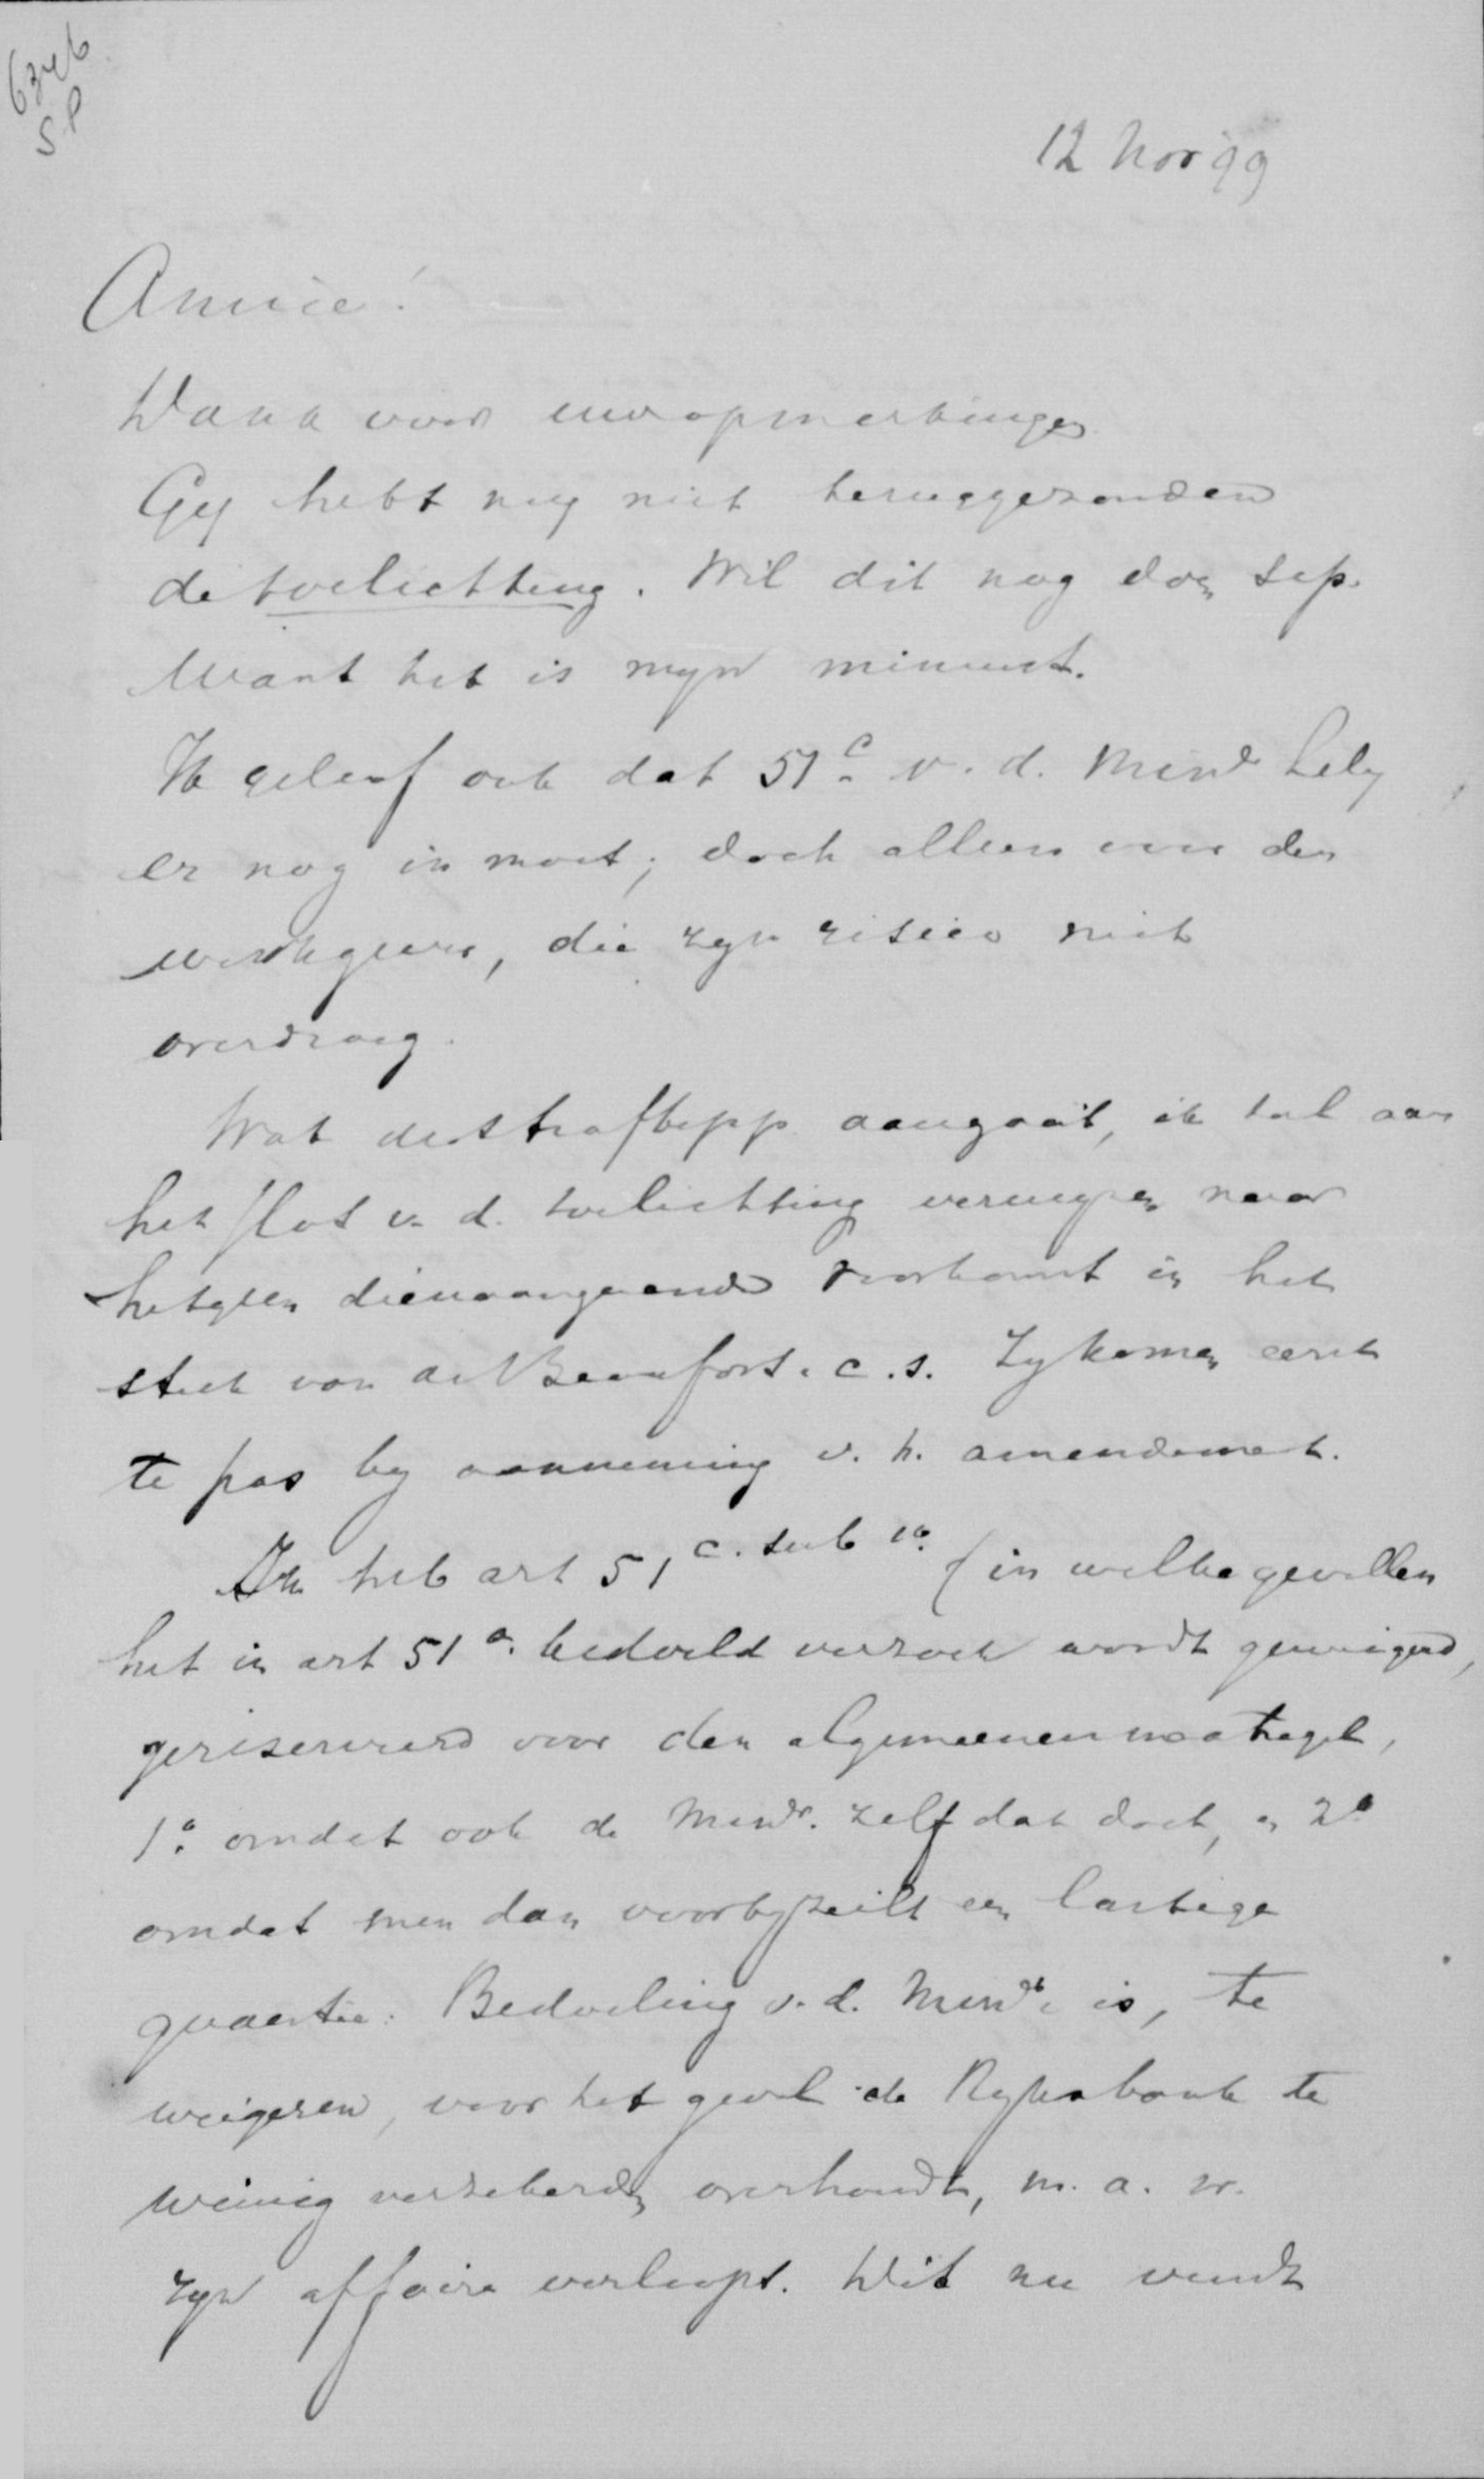 6346
S P
12 Nov 99
Amice!
Dank voor uw opmerkingen.
Gij hebt mij niet teruggezonden
de toelichting. Wil dit nog doen sep.
Want het is mijn minuut.
Ik geloof ook dat 51c. v. d. Minr Lely
er nog in moet; doch alleen voor den
werkgever, die zijn risico niet
overdroeg.
Wat de strafbepp. aangaat, ik zal aan
het slot v. d. toelichting verwijzen naar
hetgeen dienaangaande voorkomt in het
stuk van de Beaufort. c. s. Zij komen eerst
te pas bij aanneming v. h. amendement.
Ik heb art 51 c. sub 1o. (in welke gevallen
het in art 51 a. bedoeld verzoek wordt geweigerd,
gereserveerd voor den algemeenen maatregel,
1o. omdat ook de Minr. zelf dat doet, en 2o
omdat men dan voorbijzeilt een lastige
quaestie. Bedoeling v. d. Minr. is, te
weigeren, voor het geval de Rijksbank te
weinig verzekerden overhoudt, m. a. w.
zijn affaire verloopt. Dit nu vindt